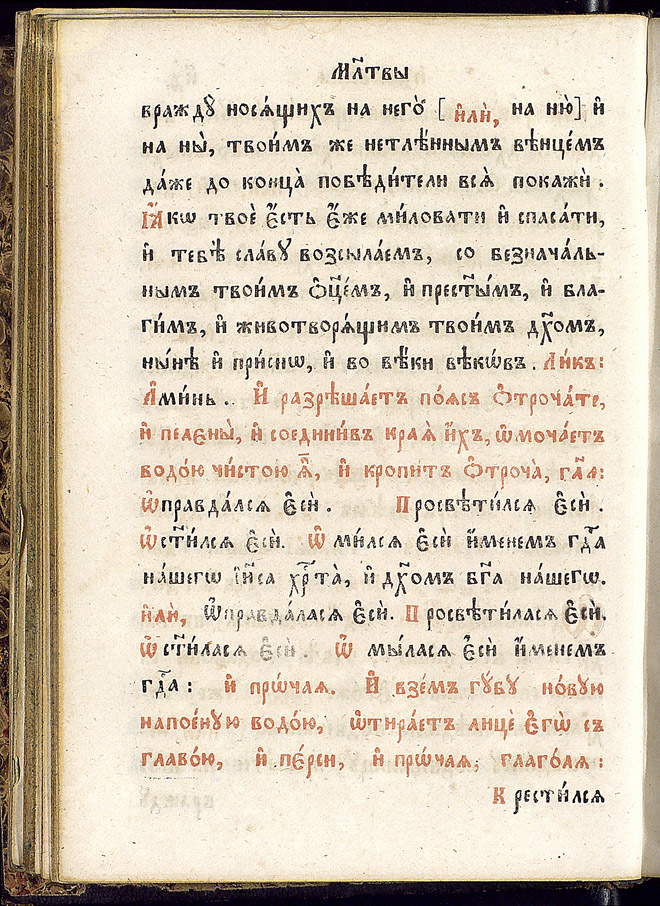 Мл҃твы
враждꙋ̀ носѧ́щихъ на него̀ [ и҆лѝ, на ню̀] и҆
на ны̀, твои́мъ же нетлѣ́ннымъ вѣнце́мъ
да́же до конца̀ побѣди́тели всѧ̀ покажѝ .
Ꙗ҆́кѡ твоѐ є҆́сть є҆́же ми́ловати и҆ спаса́ти,
и҆ тебѣ̀ сла́вꙋ возсыла́емъ, со безнача́ль-
нымъ твои́мъ ѻ҆ц҃е́мъ, и҆ прест҃ы́мъ, и҆ бла-
ги́мъ, и҆ животворѧ́щимъ твои́мъ дх҃омъ,
ны́нѣ и҆ при́снѡ, и҆ во вѣ́ки вѣкѡ́въ . Ли́къ:
А҆ми́нь . . И҆ разрѣша́етъ по́ѧсъ ѻ҆троча́те,
и҆ пелєны̀, и҆ соедини́въ краѧ̑ и҆́хъ, ѡ҆мочае́тъ
водо́ю чи́стою ѧ҆̀, и҆ кропи́тъ ѻ҆троча̀, гл҃ѧ:
Ѡ҆правда́лсѧ є҆сѝ . Просвѣти́лсѧ є҆сѝ .
Ѡ҆ст҃и́лсѧ є҆сѝ. Ѡ҆ ми́лсѧ є҆сѝ и҆́менемъ гдⷭ҇а
на́шегѡ і҆и҃са хрⷭ҇та̀, и҆ дх҃омъ бг҃а на́шегѡ.
И҆лѝ, Ѡ҆правда́ласѧ є҆сѝ. Просвѣти́ласѧ є҆сѝ.
Ѡ҆ ст҃и́ласѧ є҆сѝ . Ѡ҆ мы́ласѧ є҆сѝ и҆́менемъ
гдⷭ҇а : и҆ прѡ́чаѧ. И҆ взе́мъ гꙋ́бꙋ но́вꙋю
напое́нꙋю водо́ю, ѡ҆тира́етъ лицѐ є҆гѡ̀ съ
главо́ю, и҆ пе́рси, и҆ прѡ́чаѧ, глаго́лѧ :
К рести́лсѧ